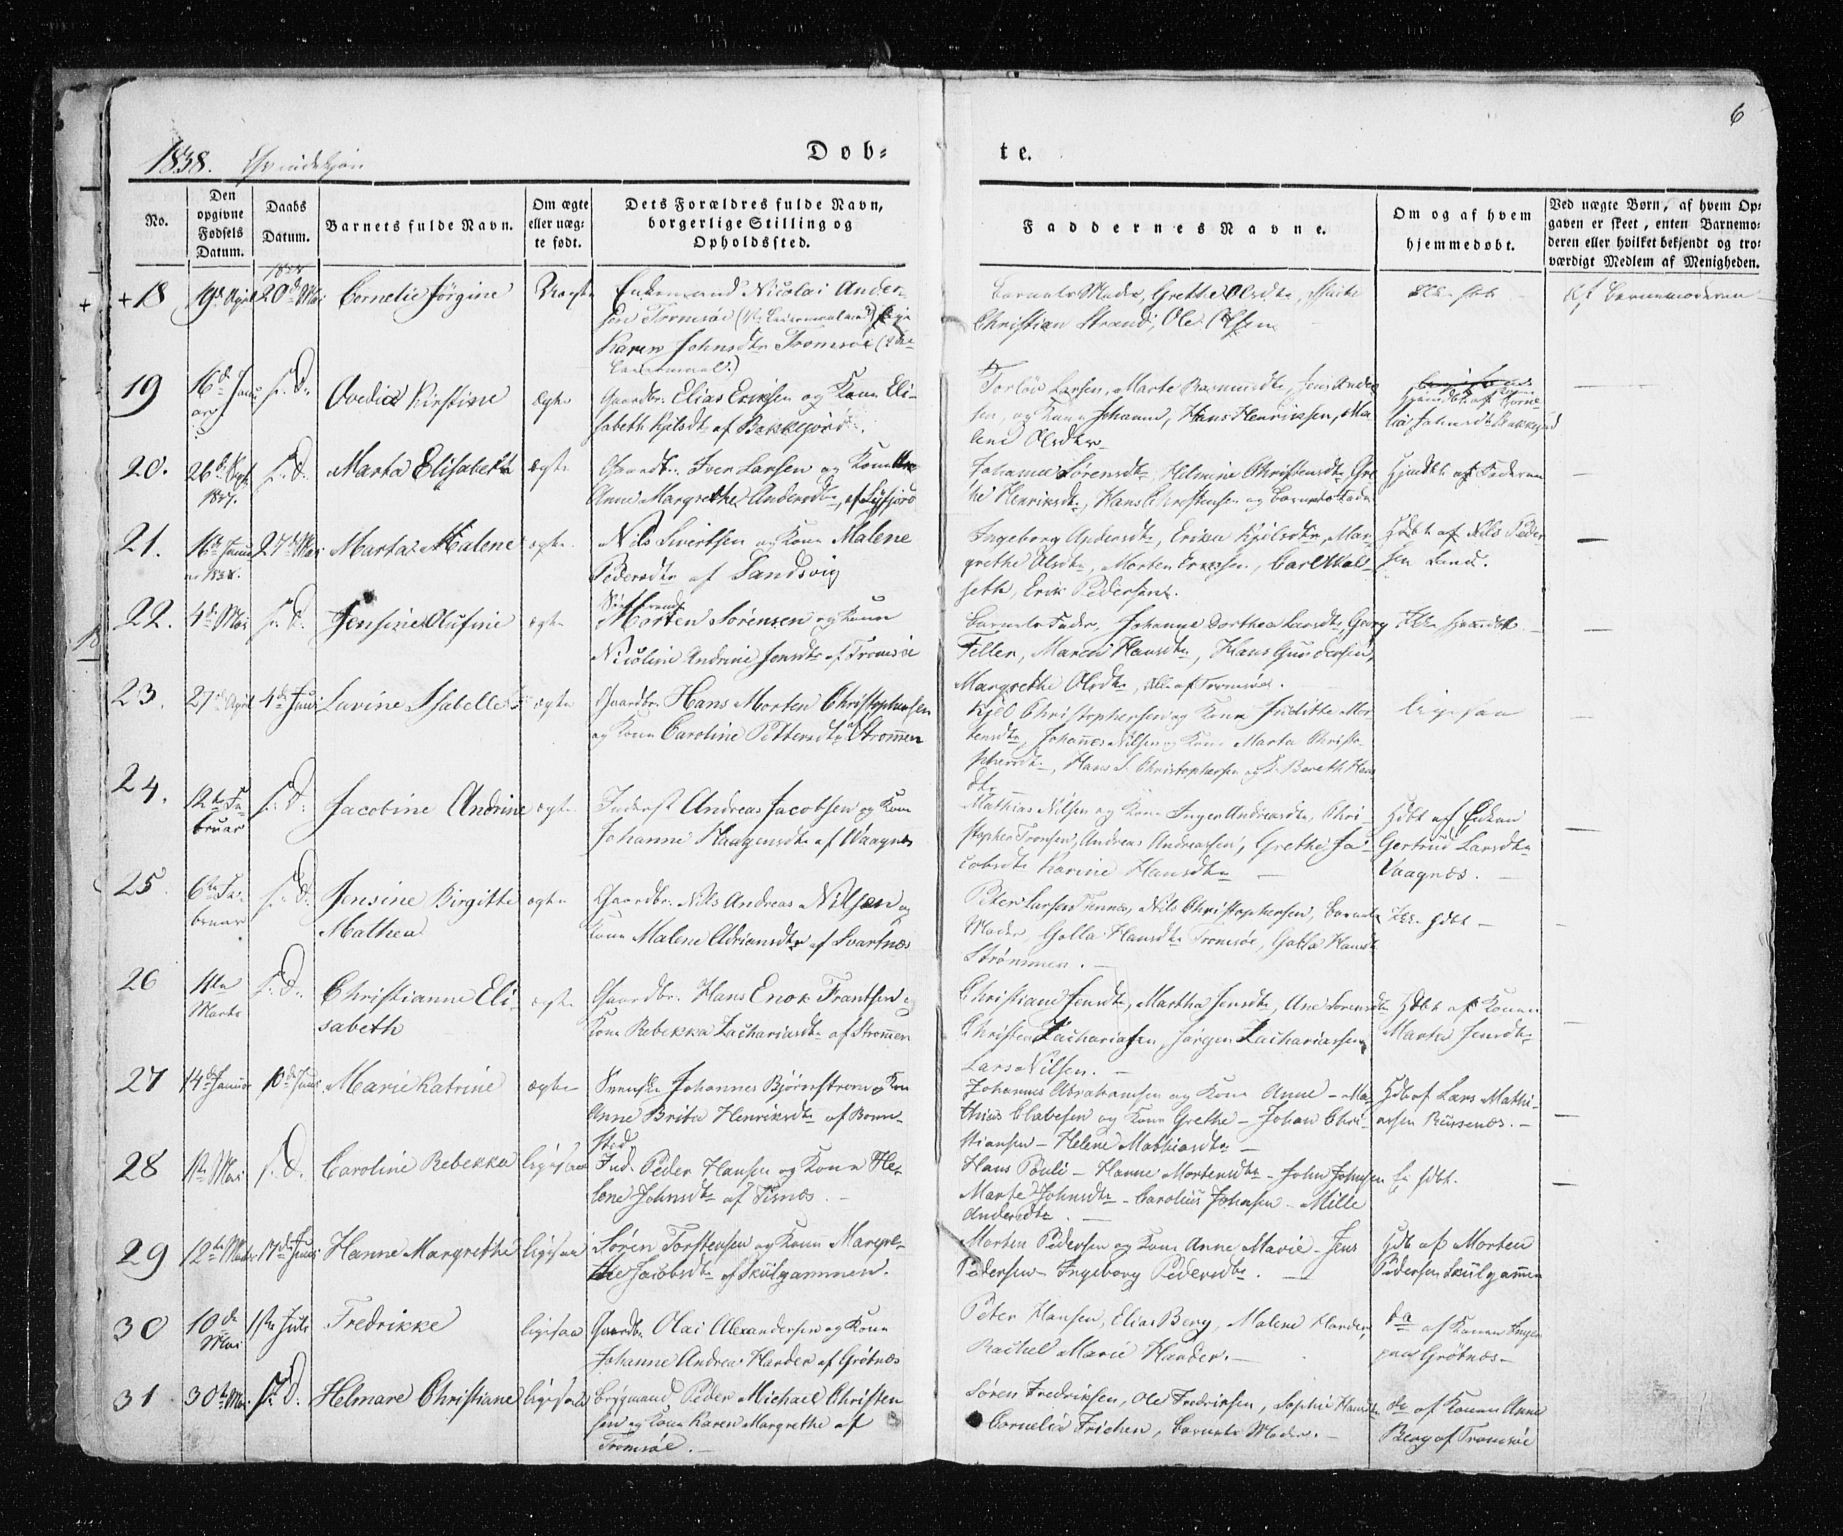 6
1838. Qvindekjøn
Døb-
te.
No.
Den opgivne Fødsels Datum.
Daabs Datum.
Barnets fulde Navn.
Om ægte eller uæg-te født.
Dets Forældres fulde Navn, borgerlige Stilling og Opholdssted.
Faddernes Navne.
Om og af hvem hjemmedøbt.
Ved uægte Børn, af hvem Op-gaven er skeet, enten Barnemo-deren eller hvilket bekjendt og tro-værdigt Medlem af Menigheden.
+18 19de April 20de Mai Cornelie Jørgine Uægte
Enkemand Nicolai Ander-
sen Tromsøe
Karen Johnsdtr Tromsøe
Barnets Moder, Grethe Olsdtr,
Christian Strand, Ole Olsen
Af Barnemoderen
19 16de Janu
ar s. D. Ovedia Kirstine ægte
Gaardbr. Elias Eriksen og Kone Eli-
sabeth Kjelsdtr af Bakkejord.
Larsen, Marte Rasmusdtr, Jens Ander
sen, og Kone Johanna, Hans Henriksen, Ma-
lene Olsdtr
Hjemdøbt af Corne-
lia Johnsdtr Bakkejord
20. 26de Sept.
1837. s. D. Marta Elisabeth ægte
Gaardbr. Iver Larsen og Kone
Anne Margrethe Andersdtr, af
Johanna Sørensdtr, Helmine Christensdtr, Gre
the Henriksdtr, Hans Christensen og Barnets Fader
Hjemdøbt af Faderen
21. 16de Janu
ar 1838. 27de Mai Marta Malene ægte
Nils Sivertsen og Kone Malene
Pedersdtr af Sandvig
Ingeborg Andersdtr, Erika Kjelsdtr, Mar-
grethe Olsdtr, Morten Ericksen, Carl Wal-
seth, Erik Pedersen.
Hdbt af Nils Peder-
sen Land.
22. 4de Mai s. D. Jensine Olufine ægte
Morten Sørensen og Kone
Nicoline Andrine Jensdtr af Tromsøe
Barnets Fader, Johanna Dorthea Larsdtr, Georg
Feller, Maren Hansdtr, Hans Gundersen,
Margrethe Olsdtr, Alle af Tromsøe.
Ikke hjemdøbt
23. 27de April 4de Juni Lavine Isabelle ægte
Gaardbr. Hans Morten Christophersen
og Kone Caroline Pettersdtr af Strømmen
Kjel Christophersen og Kone Juditte Mor
tensdtr, Johannes Nilsen og Kone Marta Christo-
phersdtr, Hans J. Christophersen og Bereth Hans
dtr
ligesaa
24. 12te Fe-
bruar s. D. Jacobine Andrine ægte
Inderst Andreas Jacobsen og Kone
Johanne Haagensdtr af Vaagnæs
Mathias Nilsen og Kone Inger Andreasdtr, Chri-
stopher Tronsen, Andreas Andreassen, Grethe Ja-
cobsdtr Karine Hansdtr
Hdbt af Enken
Gertrud Larsdtr
Vaagnæs.
25. 6te Fe-
bruar s. D. Jensine Birgitte
Mathea ægte
Gaardbr. Nils Andreas Nilsen og
Kone Malene Adriansdtr af Svartnæs
Peter Larsen Tennes, Nils Christophersen, Barnets
Moder, Golla Hansdtr Tromsøe, Golla Hansdtr
Strømmen.
Ikke hdbt
26 11te
Marts s. D. Christianne Eli-
sabeth ægte
Gaardbr. Hans Enok Frantsen og
Kone Rebekka Zachariasdtr af Strømmen
Christiane Jensdtr, Martha Jensdtr, Ane Sørensdtr
Christen Zachariasen, Jørgen Zachariassen,
Lars Nilsen.
Hdbt af Konen
Marta Jensdtr
27 14de Januar 10de Juni Marie Katrine ægte
Svenske Johannes Bjørnstrøm og Kone
Anne Brita Henriksdtr af Bonn-
Johannes Abrahamsen og Kone Anne – Ma-
thias Clabesen og Kone Grethe – Johan Chri-
stiansen – Helene Mathiasdtr
Hdbt af Lars Mathi-
assen Russenæs.
28 1ste Mai s. D. Caroline Rebekka ligesaa
Ind. Peder Hansen og Kone He-
lene Johnsdtr af Sisnæs.
Hans Pouli – Hanne Mortensdtr – John Johnsen
Marte Johnsdtr – Carolius Johnsen – Mille
Andersdtr
Ei hdbt.
29 12te Marts 17de Juni Hanne Margrethe ligesaa
Søren Torstensen og Kone Margre-
the Jacobsdtr af Skulgammen.
Morten Pedersen og Kone Anne Marie – Jens
Pedersen – Ingeborg Pedersdtr.
Hdbt af Morten
Pedersen Skulgammen
30 10de
Mai 1ste Juli Fredrikke ligesaa
Gaardbr. Olai Alexandersen og Kone
Johanne Andrea Harder af Grøtnæs
Peter Hansen, Elias Berg, Malene Harder,
Rachel Marie Harder.
do af Konen
Grøtnæs
31 30te Mai s. D. Helmare Christiane ligesaa
Bygmand Peder Michael Christen
sen og Kone Karen Margrethe af
Tromsøe.
Søren Fredriksen, Ole Fredriksen, Sophie Hansdtr
Cornelia Frichen, Barnets Moder.
do af Konen Anne
Berg af Tromsøe